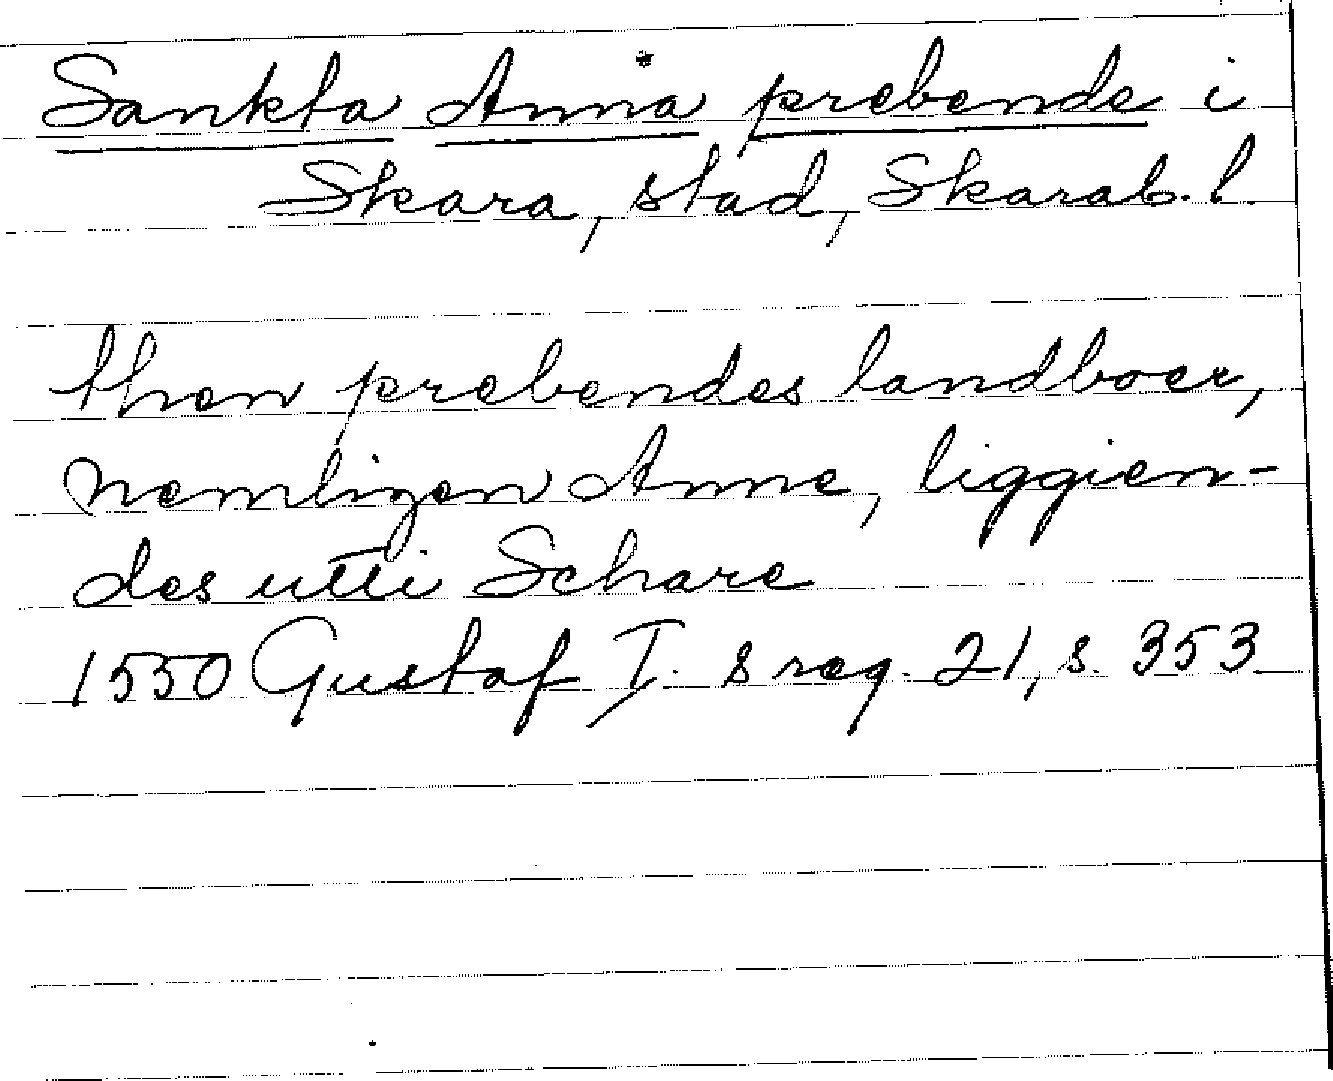 Sankta Anna* prebende i
Skara, stad, Skarab. l.
then prebendes landboer,
nemligen Anne, liggien-
des utti Schare
1550 Gustaf I. s reg. 21, s. 353